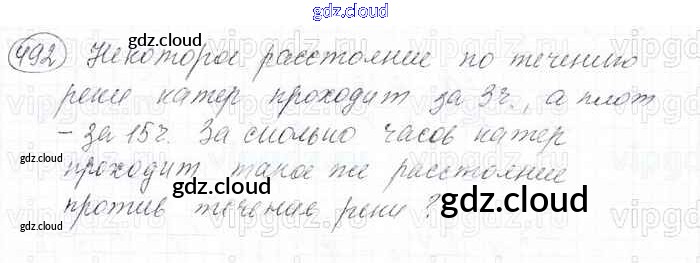 gdz.cloud
492 Некоторое расстояние по течению
реки катер проходит за 3ч., а плот
- за 15ч. За сколько часов катер
проходит такое же расстояние
против течения реки?
gdz.cloud
gdz.cloud
gdz.cloud
gdz.cloud
gdz.cloud
gdz.cloud